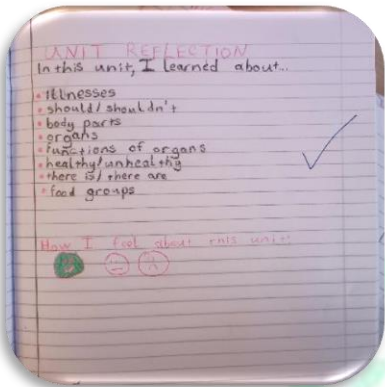 UNIT REFLECTION
In this unit, I learned about...
• illnesses
• should/shouldn't
• body parts
• organs
• functions of organs
• healthy/unhealthy
• there is/there are
• food groups
How I feel about this unit: